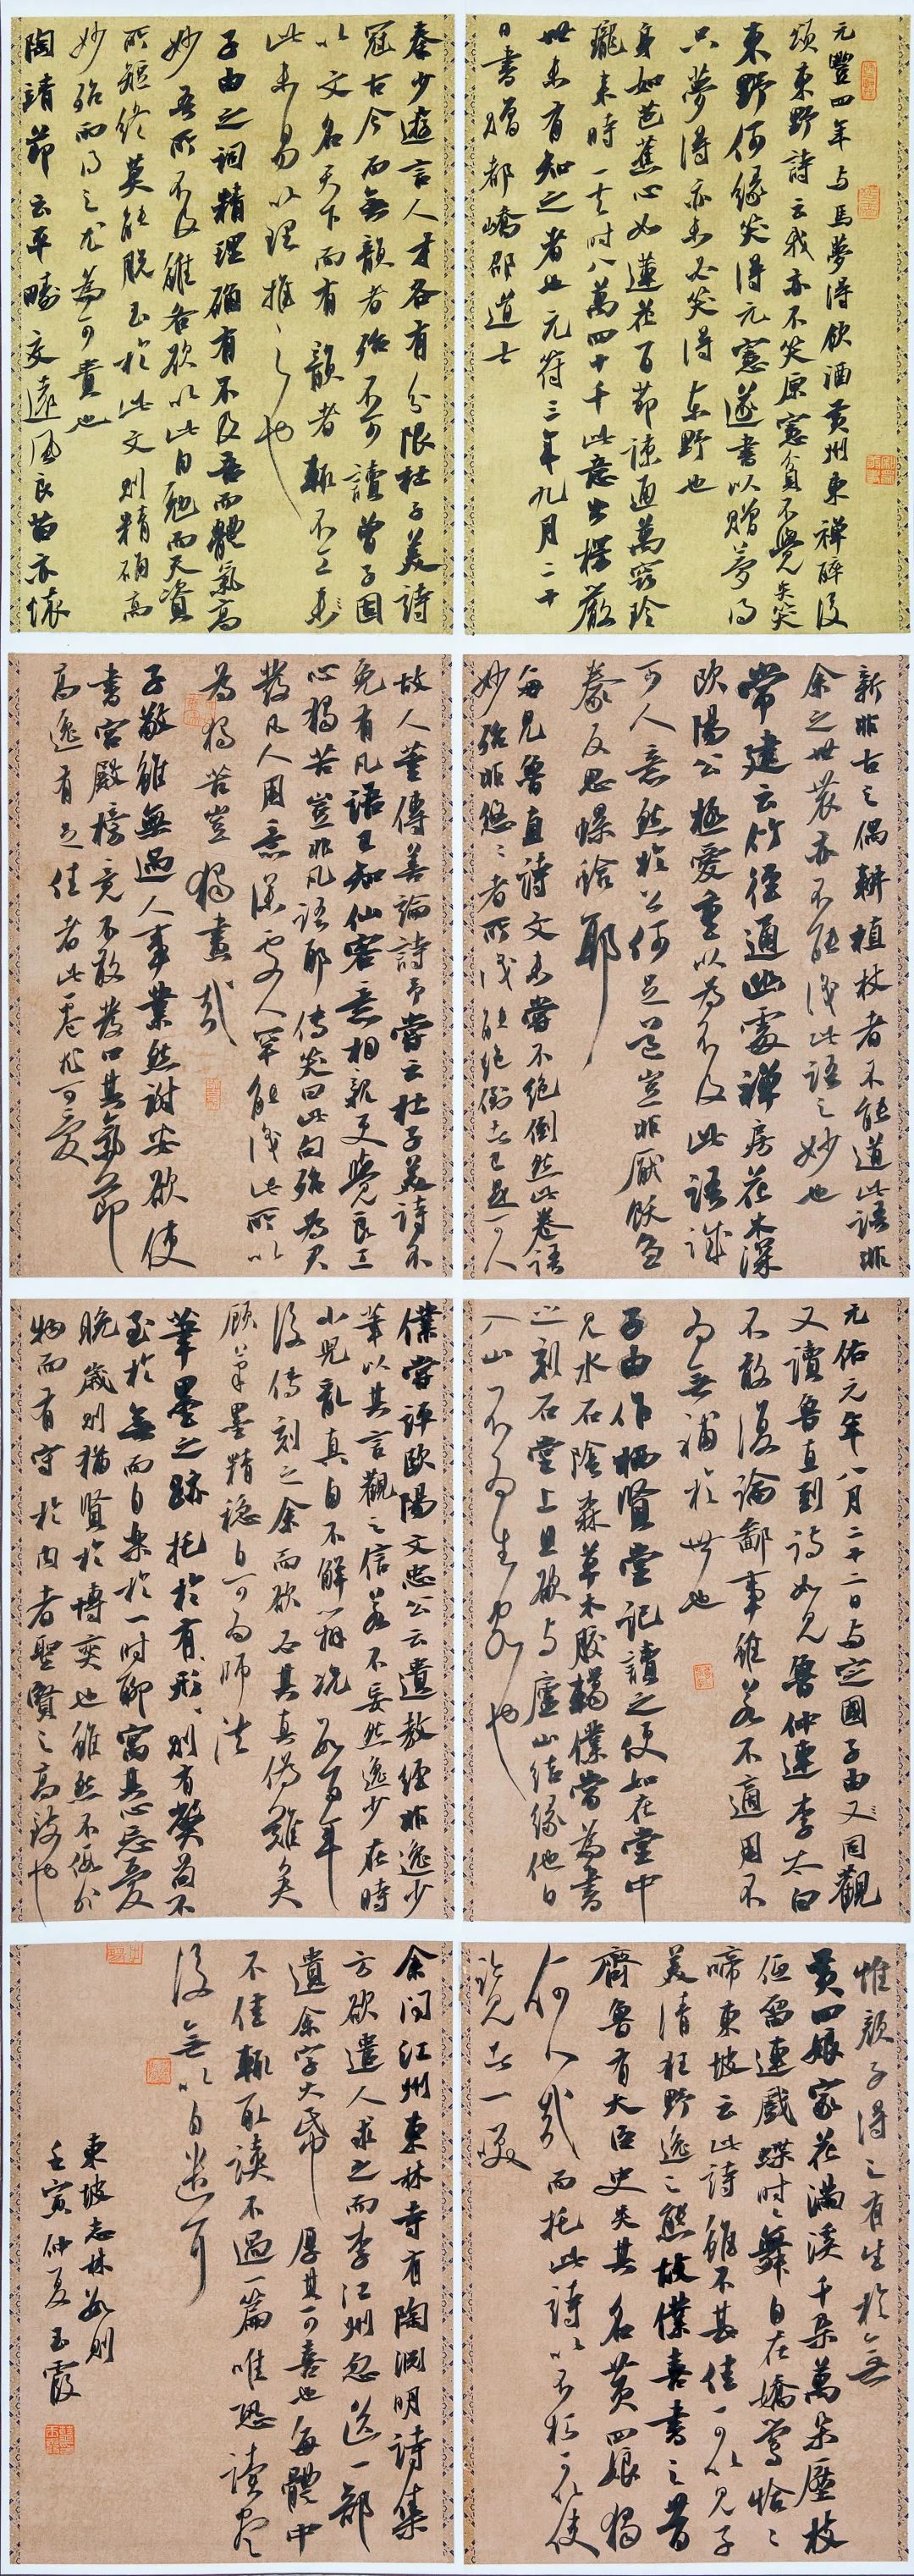 元豐四年与馬夢得飲酒黃州東禅醉後
頌東野詩云我亦不笑原憲貧不覺失笑
東野何緣笑得元憲遂書以贈夢得
只夢得亦未必笑得東野也
身如芭蕉心如蓮花百節疎通萬竅玲
瓏来時一去時八萬四千此意出楞嚴
世未有知之者也元符三年九月二十
日書贈都嶠邵道士
秦少遊言人才各有分限杜子美詩
冠古今而無韻者殆不可讀曾子固
以文名天下而有韻者輒不工
此未易以理推之也
子由之詞精理确有不及吾而體氣高
妙吾所不及雖各欲以此自勉而天資
所短終莫能脫至於此文則精确高
妙殆两得之尤為可貴也
陶靖節云平疇交遠風良苗亦懷
新非古之偶耕植杖者不能道此語非
余之世農亦不能識此語之妙也
常建云竹徑通幽處禅房花木深
歐陽公極愛重以為不及此語誠
可人意然於公何足道豈非厭飫芻
豢反思螺蛤耶
每見魯直詩文未嘗不絕倒然此卷語
妙殆非悠々者所識能絕倒者已是可人
故人董傳善論詩予嘗云杜子美詩不
免有凡語已知仙客意相親更覺良工
心獨苦豈非凡語耶傳笑曰此句殆為君
發凡人用意深處人罕能識此所以
為獨苦豈獨畫哉
子敬雖無過人事業然謝安欲使
書宮殿榜竟不敢發口其氣節
高逸有足佳者此書尤可愛
元佑元年八月二十二日与定國子由又同觀
又讀魯直到詩如見魯仲連李太白
不敢復論鄙事雖若不適用不
為無補於世也
子由作栖賢堂記讀之便如在堂中
見水石陰森草木膠轕僕當為書
之刻石堂上且欲与廬山結緣他日
入山不為生客也
僕嘗評歐陽文忠公云遺教經非逸少
筆以其言觀之信若不妄然逸少在時
小兒亂真自不解辨況數百年
後傳刻之余而欲必其真偽難矣
顧筆墨精穩自可為師法
筆墨之跡托於有形則有弊苟不
至於無而自樂於一時聊寓其心忘憂
晚歲則猶賢於博奕也雖然不假外
物而有守於内者聖賢之高致也
惟顏子得之有生於無
黃四娘家花滿溪千朵萬朵壓枝
低留連戲蝶時々舞自在嬌鶯恰々
啼東坡云此詩雖不甚佳可以見子
美清狂野逸之態故僕喜書之昔
齊魯有大臣史失其名黃四娘獨
何人哉而托此詩以不朽可使
覽者一笑
余聞江州東林寺有陶渊明詩集
方欲遣人求之而李江州忽送一部
遺余字大帋厚其可喜也每體中
不佳輒取讀不過一篇唯恐讀盡
後無以自遣耳
東坡志林數則
壬寅仲夏玉霞